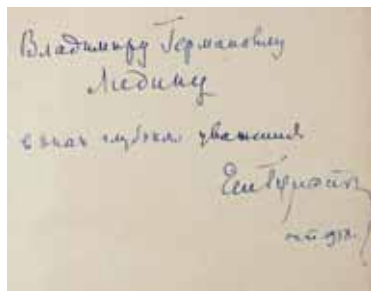 Владимиру Германовичу
Лидину
в знак глубокого уважения
окт. 1958.